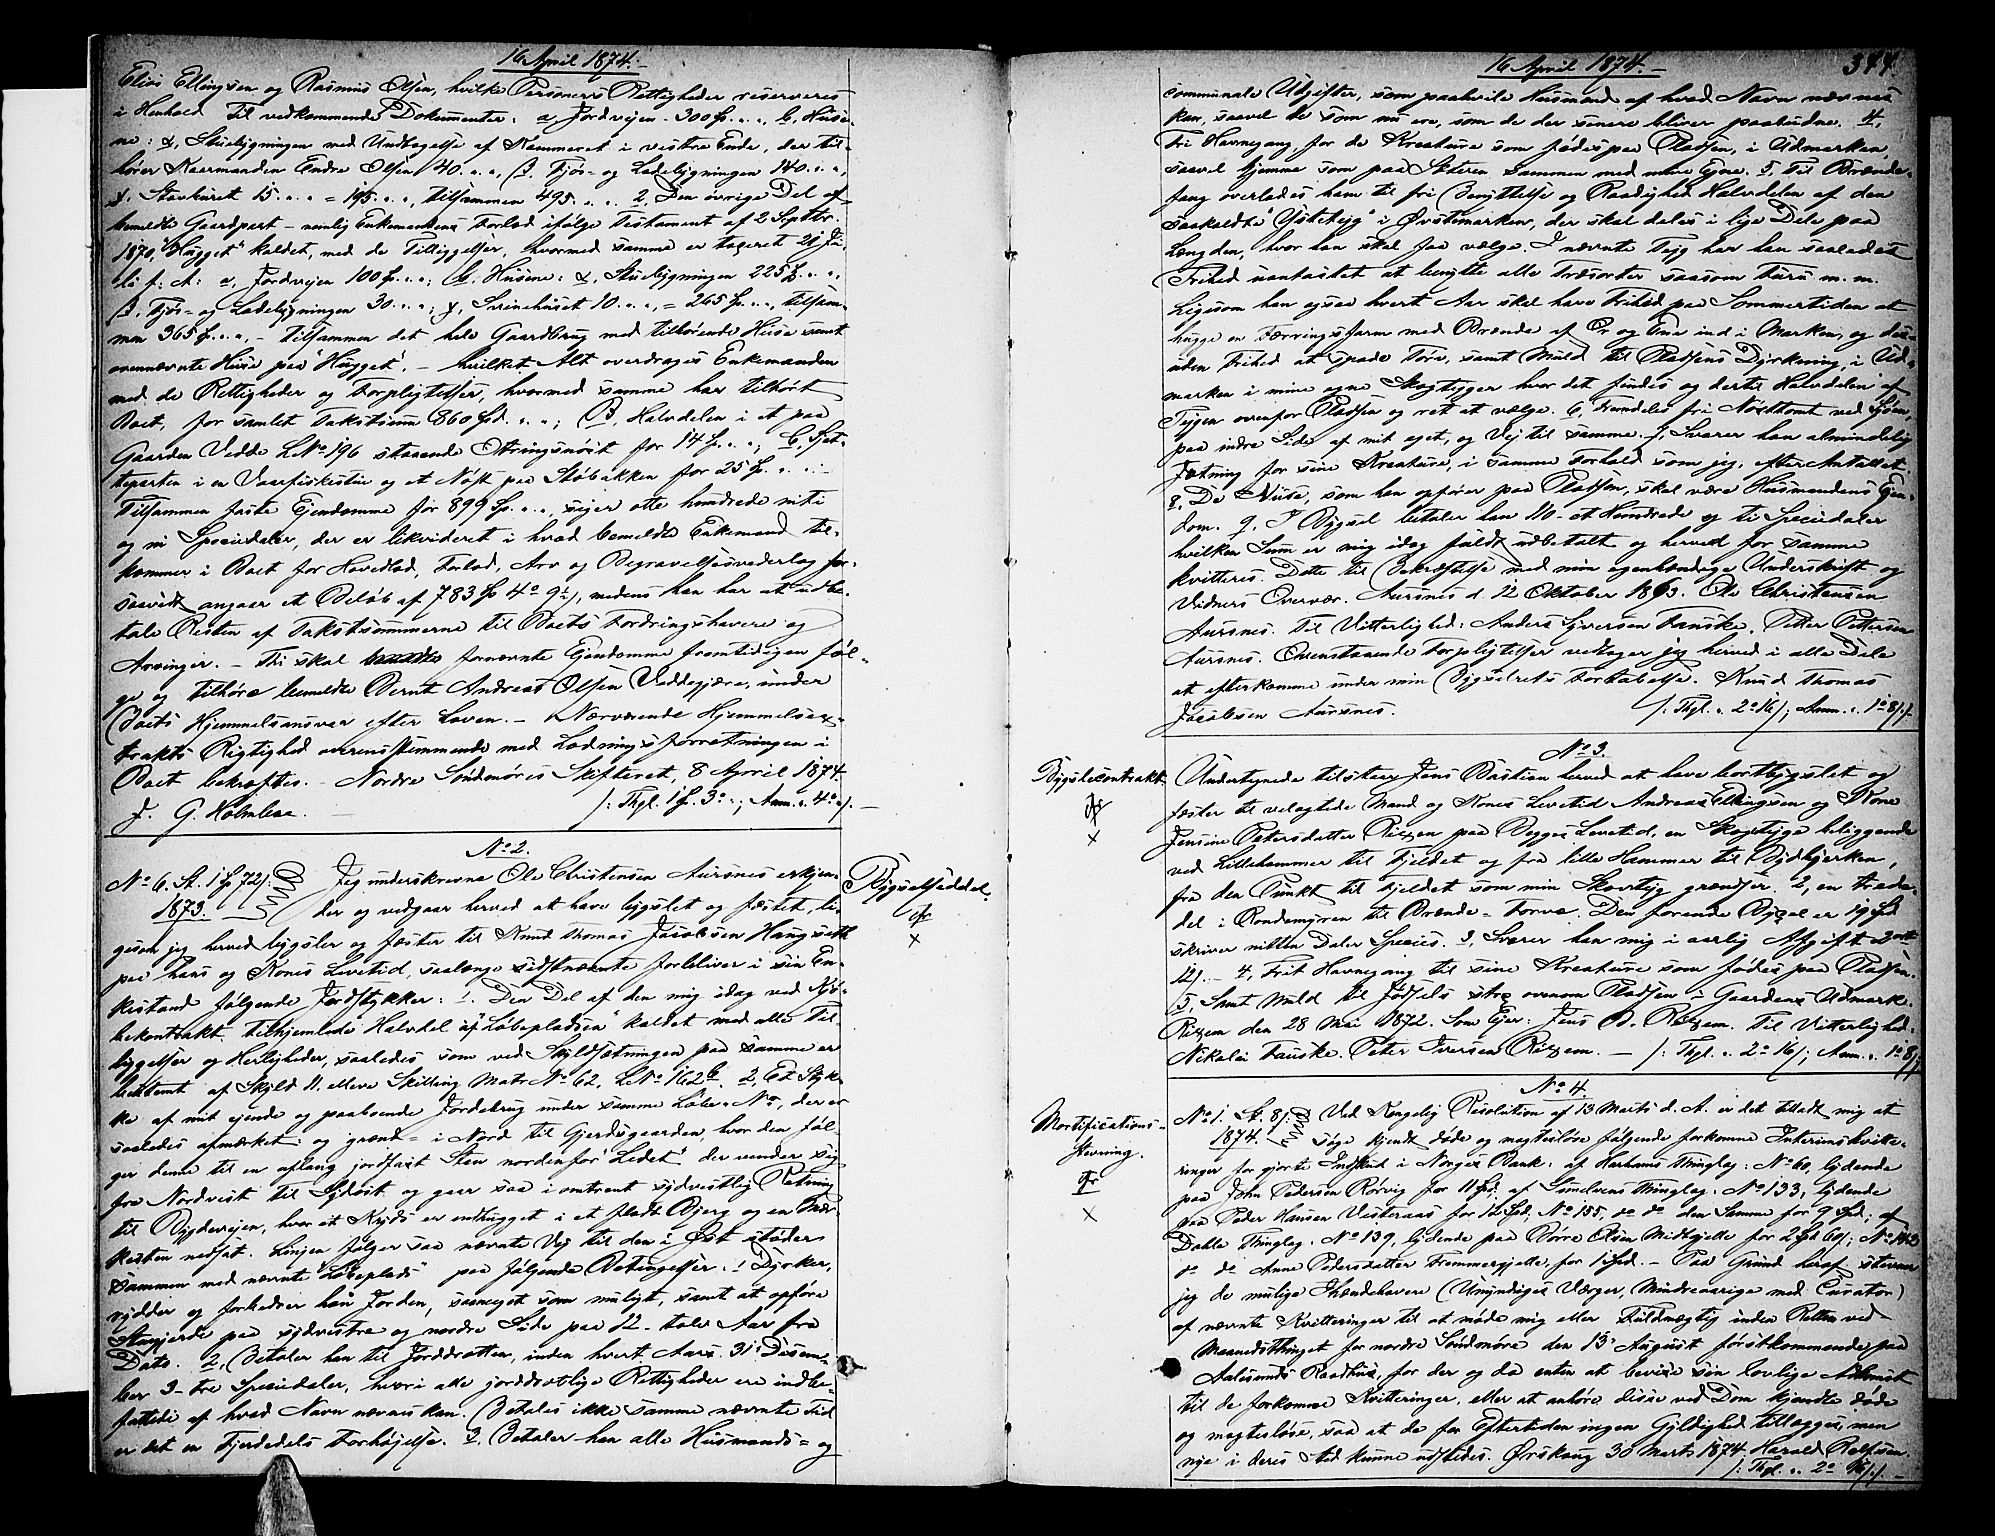 16 April 1874.
Elias Ellingsen og Rasmus Olsen, hvilke Personers Rettigheder reserveres
i Henhold til vedkommende Dokumenter: a, Jordvejen - 300 , b, Huse-
ne: α, Stuebygningen med Undtagelse af Kammeret i vestre Ende, der til-
hører Kaarmanden Endre Olsen 40 , β, Fjøs- og Ladebygningen 140
γ, Stavhuset 15 = 195 , tilsammen 495 . 2, Den øvrige Del af
bemeldte Gaardpart - nemlig Enkemandens Forlod ifølge Testament af 2 Septbr.
1870, "Hugget" kaldet, med de Tilliggelser, hvormed samme er taxeret 21 Ju-
li f. A: a, Jordvejen 100 ; b, Husene: α, Stuebygningen 225
β, Fjøs- og Ladebygningen 30 ; γ, Svinehuset 10 , = 265 , tilsam-
men 365 , - tilsammen det hele Gaardbrug med tilhørende Huse samt
ovennævnte Huse paa "Hugget", - hvilket Alt overdrages Enkemanden
med de Rettigheder og Forpligtelser, hvormed samme har tilhørt
Boet, for samlet Takstsum 860 Spd. ; B, Halvdelen i et paa
Gaarden Vedde LNo 196 staaende Ottringsnøst for 14 ; C, Sjet-
teparten i en Vaarfiskestue og et Nøst paa Støbakken for 25
Tilsammen faste Ejendomme for 899 , siger otte hundrede niti
og ni Speciedaler, der er likvideret i hvad bemeldte Enkemand til-
kommer i Boet for Hovedlod, Forlod, Arv og Begravelsesvederlag for-
saavidt angaar et Beløb af 783 4 9, medens han har at udbe-
tale Resten af Takstsummerne til Boets Fordringshavere og
Arvinger. - Thi skal fornævnte Ejendomme fremtidigen føl-
ge og tilhøre bemeldte Bernt Andreas Olsen Veddegjære, under
Boets Hjemmelsansvar efter Loven. - Nærværende Hjemmelsex-
trakts Rigtighed overensstemmende med Lodningsforretningen i
Boet bekræftes. - Nordre Søndmøres Skifteret, 8 April 1874.
J. G. Holmboe. /: Thgl. 1 3 ; Anm. 4 /. -
No 2.
No 6. St. 1 72/. 1873.
Bygselseddel.
Jeg underskrevne Ole Christensen Aursnes erkjen-
der og vedgaar herved at have bygslet og fæstet, li-
gesom jeg herved bygsler og fæster til Knud Thomas Jacobsen Haugseth
paa hans og Kones Levetid, saalænge sidstnævnte forbliver i sin En-
kestand følgende Jordstykker: 1. Den Del af den mig idag ved Kjø-
bekontrakt tilhjemlede Halvdel af "Løbepladsen" kaldet med alle Til-
liggelser og Herligheder, saaledes som ved Skyldsætningen paa samme er
bestemt af Skyld 11. elleve Skilling Matr No 62, LNo 162b. 2, Et Styk-
ke af mit ejende og paaboende Jordebrug under samme Løbe-No, der er
saaledes afmærket: og grænd- i Nord til Gjerdsgaarden, hvor den føl-
ger denne til en aflang jordfast Sten nordenfor "Ledet" der vender sig
fra Nordvest til Sydøst og gaar saa i omtrent sydvestlig Retning
til Bygdevejen, hvor et Kryds er indhugget i et fladt Bjerg og en Mær-
kesten nedsat. Linjen følger saa nævnte Vej til den i Øst støder
sammen med nævnte "Løbeplads" paa følgende Betingelser: 1 Dyrker,
rydder og forbedrer han Jorden, saameget som muligt, samt at opføre
Stengjerde paa sydvestre og nordre Side paa 12 - tolv Aar fra
Dato. 2, Betaler han til Jorddrotten, inden hvert Aars 31 Desem-
ber 3 - tre Speciedaler, hvori alle jorddrotlige Rettigheder ere indbe-
fattede af hvad Navn nævnes kan. Betales ikke samme nævnte Tid
er det en Fjerdedels Forhøjelse. 3, Betaler han alle Husmands- og
16 April 1874. -
344.
communale Udgifter, som paahvile Husmænd af hvad Navn nævnes
kan, saavel de som nu ere, som de der senere bliver paabudne. 4,
Fri Havnegang for de Kreature som fødes paa Pladsen, i Udmarken,
saavel hjemme som paa Sæteren sammen med mine Egne. 5, Til Brænde-
fang overlades ham til fri Benyttelse og Raadighed Halvdelen af den
saakaldte "Ystetejg" i Øvstemarken, der skal deles i lige Dele paa
Længden, hvor han skal faa vælge. I nævnte Tejg har han saaledes
Frihed uantastet at benytte alle Træsorter saasom Furu m. m.
Ligesom han ogsaa hvert Aar skal have Frihed paa Sommertiden at
hugge en Færringsfarm med Brænde af Or og Ene ind i Marken, og des-
uden Frihed at spade Torv, samt Muld til Pladsens Dyrkning, i Ud-
marken i mine egne Skogtejger hvor det findes og dertil Halvdelen af
Tejgen ovenfor Pladsen og ret at vælge. 6, Fremdeles fri Nøsttomt ved Søen,
paa indre Side af mit eget, og Vej til samme. 7, Svarer han almindelig
Gjætning for sine Kreature, i samme Forhold som jeg, efter Antallet.
8, De Huse, som han opfører paa Pladsen, skal være Husmandens Ejen-
dom. 9. I Bygsel betaler han 110 - et Hundrede og ti Speciedaler
hvilken Sum er mig idag fuldt udbetalt og herved for samme
kvitteres. Dette til Bekræftelse med min egenhændige Underskrift og
Vidners Overvær. Aursnes d. 12 Oktober 1863. Ole Christensen
Aursnes. Til Vitterlighed: Anders Iversen Fauske. Petter Pettersen
Aursnes. Ovenstaaende Forpligtelser vedtager jeg herved i alle Dele
at efterkomme under min Bygselrets Fortabelse. Knud Thomas
Jacobsen Aursnes. /: Thgl. 2 16/; Anm. 1 8/. /-
No 3.
Bygslecontrakt.
Undertegnede tilstaar Jens Bastian herved at have bortbygslet og
fæster til velagtede Mand og Kones Levetid Andreas Ellingsen og Kone
Jensine Petersdatter Riksem paa Begges Levetid, en Skogtejge beliggende
ved Lillehammer til Fjeldet og fra lille Hammer til Bjerken,
fra den Punkt til Fjeldet som min Skovtejg grændser. 2, en Trede-
del i Rondemyren til Brænde-Torve. Den forende Bygsel er 19 Spd
skriver nitten Daler Species. 3, Svarer han mig i aarlig Afgift 2
12/. - 4, Frit Havnegang til sine Kreature som fødes paa Pladsen.
5, Samt Muld til Fødsels strø ovenom Pladsen i Gaardens Udmark.
Rixem den 28 Mai 1872. Som Ejer: Jens B. Rixem. Til Vitterlighed:
Nikolai Fauske. Peter Iversen Rixem. - /: Thgl. 2 16/; Anm. 1 8/./-
No 4.
Mortifications-
stevning.
No 1. St. 8/. 1874.
Ved Kongelig Resolution af 13 Marts d. A. er det tilladt mig at
søge kjendt døde og magtesløse følgende forkomne Interimskvitte-
ringer for gjorte Indskud i Norges Bank: af Harhams Thinglag: No 60, lydende
paa John Pedersen Rørvig for 11 Spd. af Simelvens Thinglag: No 133, lydende
paa Peder Hansen Vesteraas for 12 Spd, No 155, do do den Samme for 9 Spd; af
Dahle Thinglag: No 139, lydende paa Børre Olsen Midtgjelte for 2 Spd 60/;
do do Anne Pedersdatter Fremmergjelte, for 1 Spd. - Paa Grund heraf stevner
jeg de mulige Ihændehavere (Umyndiges Værger, Mindreaarige med Curator)
af nævnte Kvitteringer til at møde mig eller Fuldmægtig inden Retten ved
Maanedsthinget for nordre Søndmøre den 13 August førstkommende paa
Aalesunds Raadhus, for der og da enten at bevise sin lovlige Adkomst
til de forkomne Kvitteringer, eller at anhøre disse ved Dom kjendte døde
og magtesløse, saa at de for Eftertiden ingen Gyldighed tillægges, men
nye i deres Sted kunne udstedes. Ørskoug 30 Marts 1874. Harald Relfsen.
/: Thgl. 2 16/./-